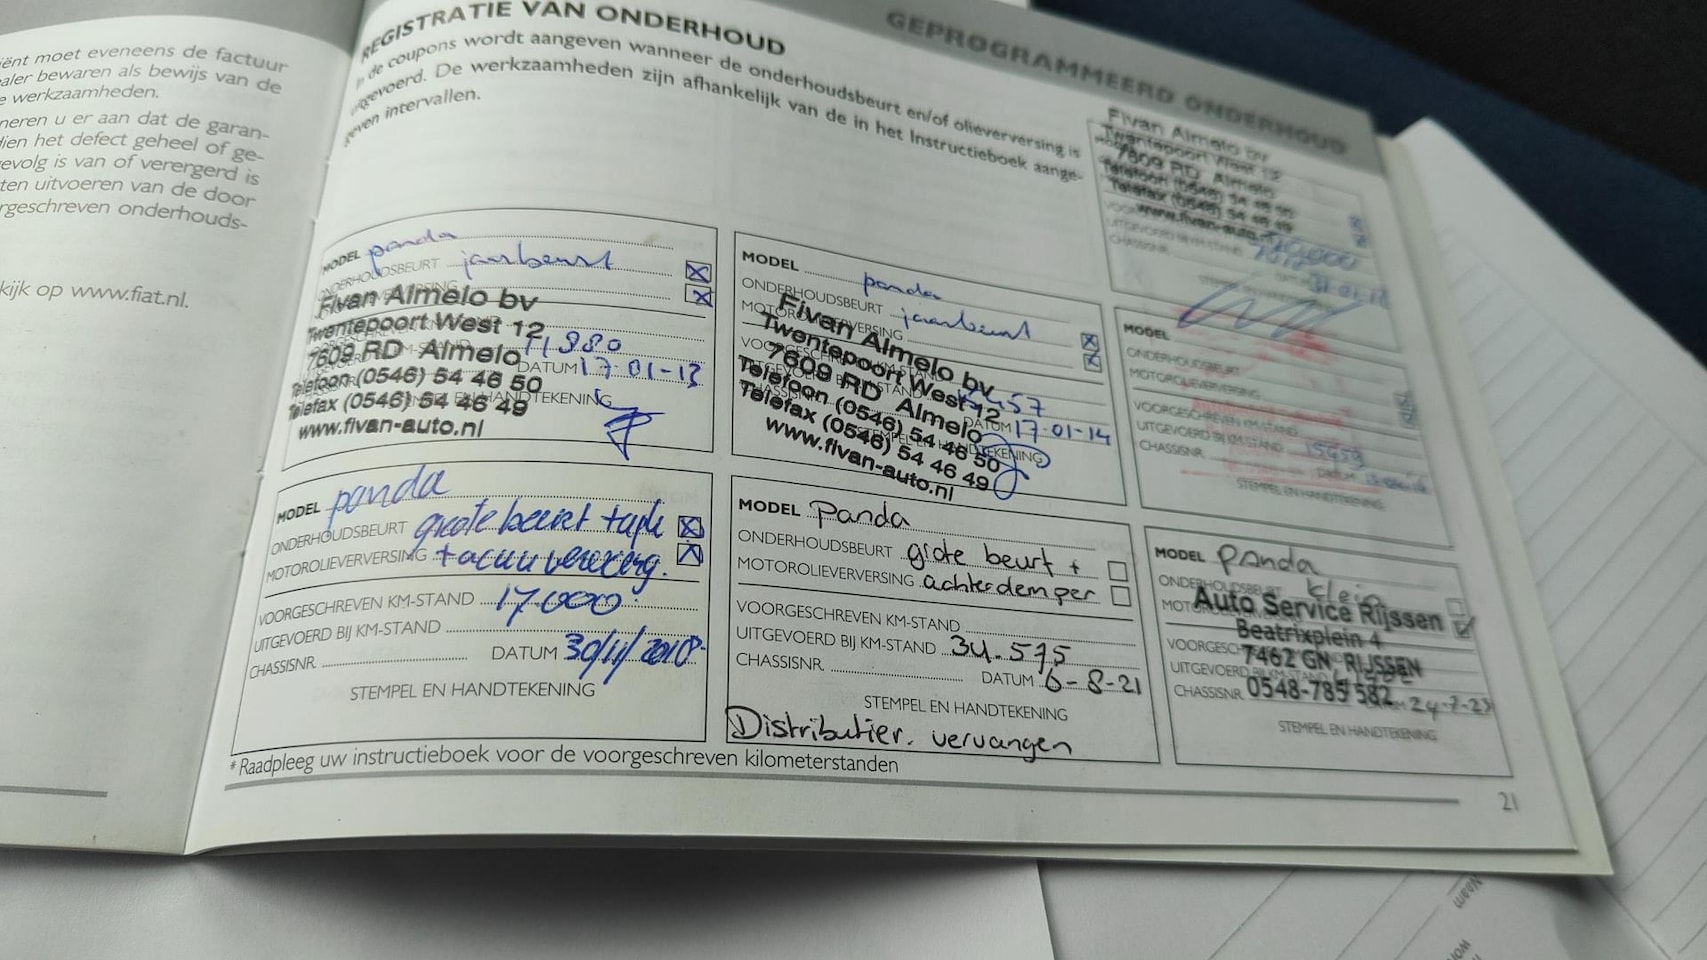 iënt moet eveneens de factuur
aler bewaren als bewijs van de
e werkzaamheden.
neren u er aan dat de garan-
dien het defect geheel of ge-
evolg is van of verergerd is
ten uitvoeren van de door
rgeschreven onderhouds-
kijk op www.fiat.nl.
GEPROGRAMMEERD ONDERHOUD
REGISTRATIE VAN ONDERHOUD
In de coupons wordt aangeven wanneer de onderhoudsbeurt en/of olieverversing is
uitgevoerd. De werkzaamheden zijn afhankelijk van de in het Instructieboek aange-
geven intervallen.
Fivan Almelo bv
Twentepoort West 12
7609 RD Almelo
Telefoon (0546) 54 46 50
Telefax (0546) 54 46 49
www.fivan-auto.nl
CHASSISNR.
MODEL panda
ONDERHOUDSBEURT jaarbeurt
Fivan Almelo bv
Twentepoort West 12
7609 RD Almelo
DATUM 17-01-13
Telefoon (0546) 54 46 50
EN HANDTEKENING
Telefax (0546) 54 46 49
www.fivan-auto.nl
MODEL panda
ONDERHOUDSBEURT jaarbeurt
MOTOROLIEVERVERSING
Fivan Almelo bv
Twentepoort West 12
7609 RD Almelo
DATUM 17-01-14
Telefoon (0546) 54 46 50
Telefax (0546) 54 46 49
www.fivan-auto.nl
MODEL
ONDERHOUDSBEURT
MOTOROLIEVERVERSING
VOORGESCHREVEN KM-STAND
UITGEVOERD BIJ KM-STAND
CHASSISNR.
DATUM
STEMPEL EN HANDTEKENING
MODEL panda
ONDERHOUDSBEURT grote beurt +
MOTOROLIEVERVERSING
VOORGESCHREVEN KM-STAND 17.000
UITGEVOERD BIJ KM-STAND
CHASSISNR. DATUM 30/11/2018
STEMPEL EN HANDTEKENING
MODEL Panda
ONDERHOUDSBEURT grote beurt +
MOTOROLIEVERVERSING achterdemper
VOORGESCHREVEN KM-STAND
UITGEVOERD BIJ KM-STAND 34.575
CHASSISNR. DATUM 6-8-21
STEMPEL EN HANDTEKENING
Distributier. vervangen
MODEL Panda
ONDERHOUDSBEURT klein
Auto Service Rijssen
Beatrixplein 4
7462 GN RIJSSEN
CHASSISNR. 0548-785 582
STEMPEL EN HANDTEKENING
* Raadpleeg uw instructieboek voor de voorgeschreven kilometerstanden
21
Naam